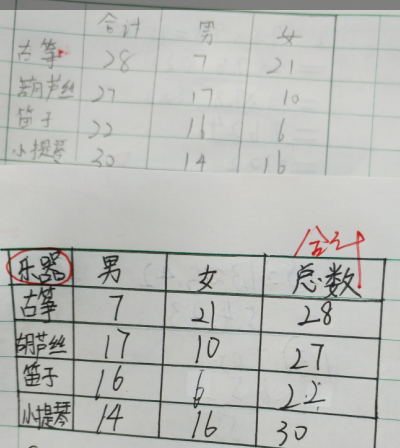 合计 男 女
古筝 28 7 21
葫芦丝 27 17 10
笛子 22 16 6
小提琴 30 14 16
合计
乐器 男 女 总数
古筝 7 21 28
胡芦丝 17 10 27
笛子 16 6 22
小提琴 14 16 30